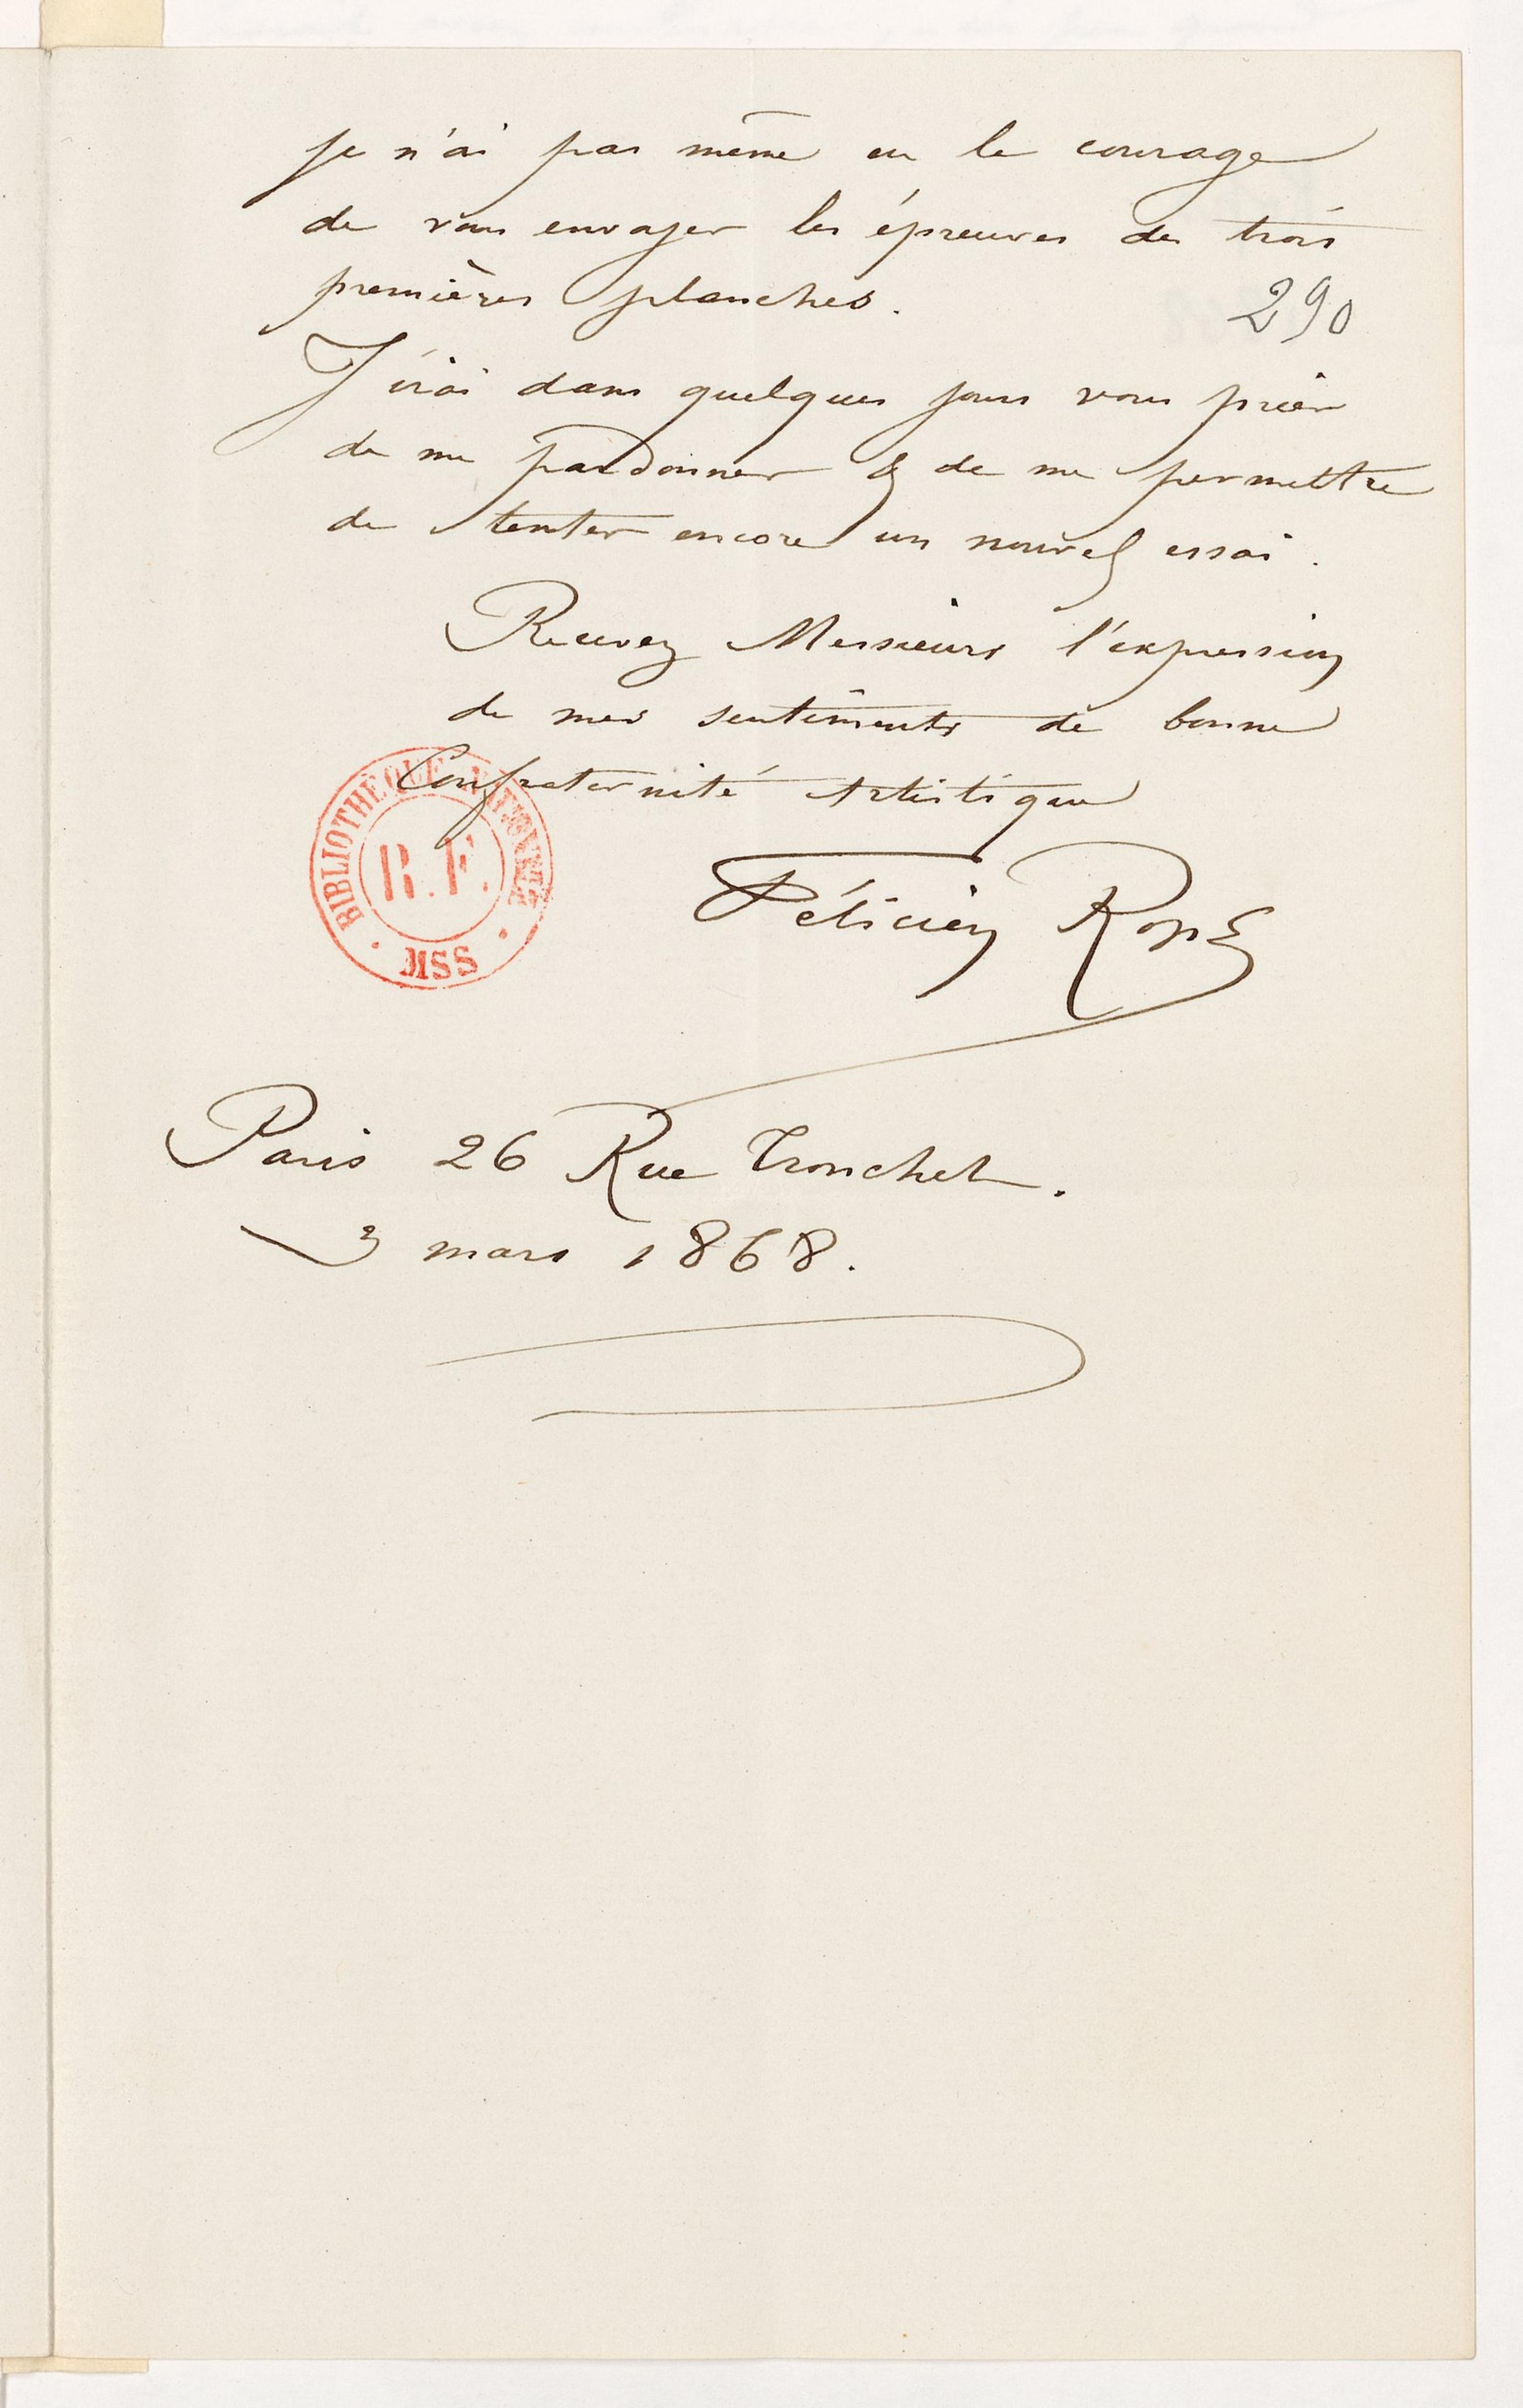 je n'ai pas même eu le courage
de vous envoyer les épreuves des trois
premières planches.
290
J'irai dans quelques jours vous prier
de me pardonner & de me permettre
de tenter encore un nouvel essai.
Recevez Messieurs l'expression
de mes sentiments de bonne
Confraternité Artistique
BIBLIOTHÈQUE NATIONALE
R.F.
MSS
Félicien Rops
Paris 26 Rue Tronchet.
3 mars 1868.